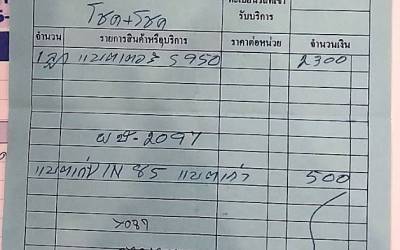 รับบริการ
โชค+โชค
จำนวน รายการสินค้าหรือบริการ ราคาต่อหน่วย จำนวนเงิน
1 ลูก แบตเตอรี่ S 950 2300
ผษ-2097
แบตเก่า IN 85 แบตเก่า 500